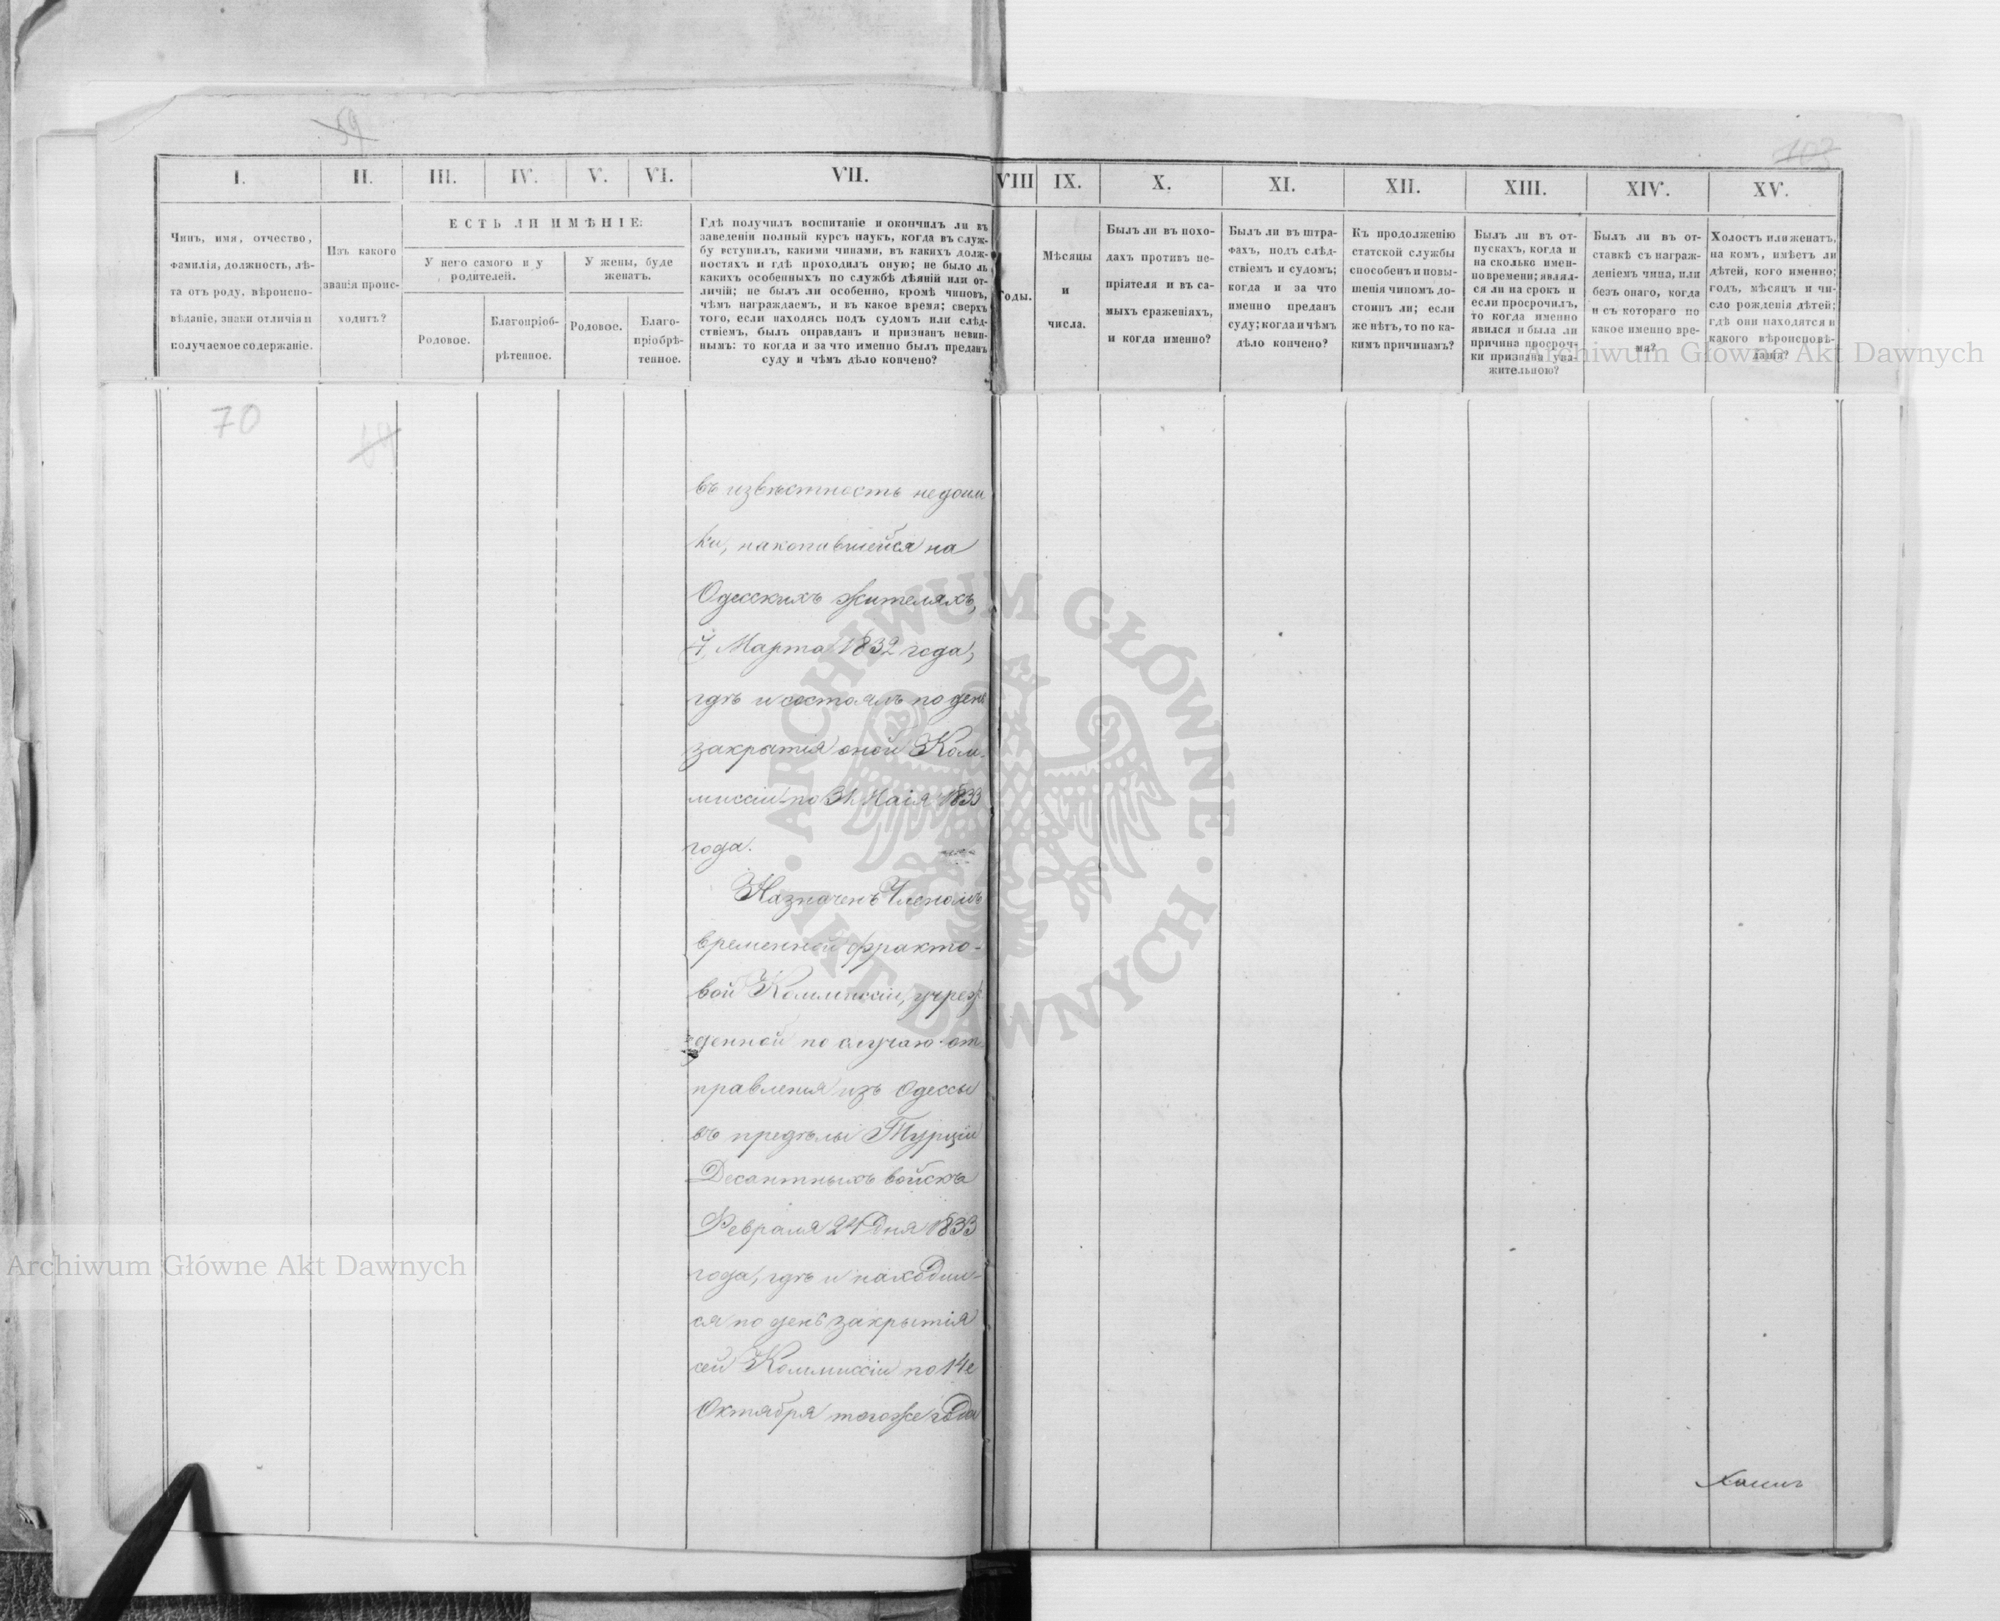 59
103
I.
II.
III.
IV.
V.
VI.
VII.
VIII
IX.
X.
XI.
XII.
XIII.
XIV.
XV.
Чинъ, имя, отчество,
фамилія, должность, лѣ-
та отъ роду, вѣроиспо-
вѣданіе, знаки отличія и
получаемое содержаніе.
Изъ какого
званія проис-
ходитъ?
ЕСТЬ ЛИ ИМѢНІЕ:
У него самого и у
родителей.
У жены, буде
женатъ.
Родовое.
Благопріоб-
рѣтенное.
Родовое.
Благо-
пріобрѣ-
тенное.
Гдѣ получилъ воспитаніе и окончилъ ли въ
заведеніи полный курсъ наукъ, когда въ служ-
бу вступилъ, какими чинами, въ какихъ долж-
ностяхъ и гдѣ проходилъ оную; не было ль
какихъ особенныхъ по службѣ дѣяній или от-
личій; не былъ ли особенно, кромѣ чиновъ,
чѣмъ награждаемъ, и въ какое время; сверхъ
того, если находясь подъ судомъ или слѣд-
ствіемъ, былъ оправданъ и признанъ невин-
нымъ: то когда и за что именно былъ преданъ
суду и чѣмъ дѣло кончено?
Годы.
Мѣсяцы
и
числа.
Былъ ли въ похо-
дахъ противъ не-
пріятеля и въ са-
мыхъ сраженіяхъ,
и когда именно?
Былъ ли въ штра-
фахъ, подъ слѣд-
ствіемъ и судомъ;
когда и за что
именно преданъ
суду; когда и чѣмъ
дѣло кончено?
Къ продолженію
статской службы
способенъ и повы-
шенія чиномъ до-
стоинъ ли; если
же нѣтъ, то по ка-
кимъ причинамъ?
Былъ ли въ от-
пускахъ, когда и
на сколько имен-
но времени; являл-
ся ли на срокъ и
если просрочилъ,
то когда именно
явился и была ли
причина просроч-
ки признана ува-
жительною?
Былъ ли въ от-
ставкѣ съ награж-
деніемъ чина, или
безъ онаго, когда
и съ котораго по
какое именно вре-
мя?
Холостъ или женатъ,
на комъ, имѣетъ ли
дѣтей, кого именно;
годъ, мѣсяцъ и чи-
сло рожденія дѣтей;
гдѣ они находятся и
какого вѣроисповѣ-
данія?
70
въ извѣстность недоим
ки, накопившейся на
Одесскихъ жителяхъ,
7 Марта 1832 года,
гдѣ и состоялъ по день
закрытія оной Ком-
миссіи по 31 Маія 1833
года.
Назначенъ Членомъ
временной фрахто-
вой Коммиссіи, учреж
денной по случаю от-
правленія изъ Одессы
въ предѣлы Турціи
Десантныхъ войскъ
Февраля 24 дня 1833
года, гдѣ и находил-
ся по день закрытія
сей Коммиссіи по 14е
Октября того же года
Archiwum Główne Akt Dawnych
Archiwum Główne Akt Dawnych
ARCHIWUM GŁÓWNE · AKT DAWNYCH ·